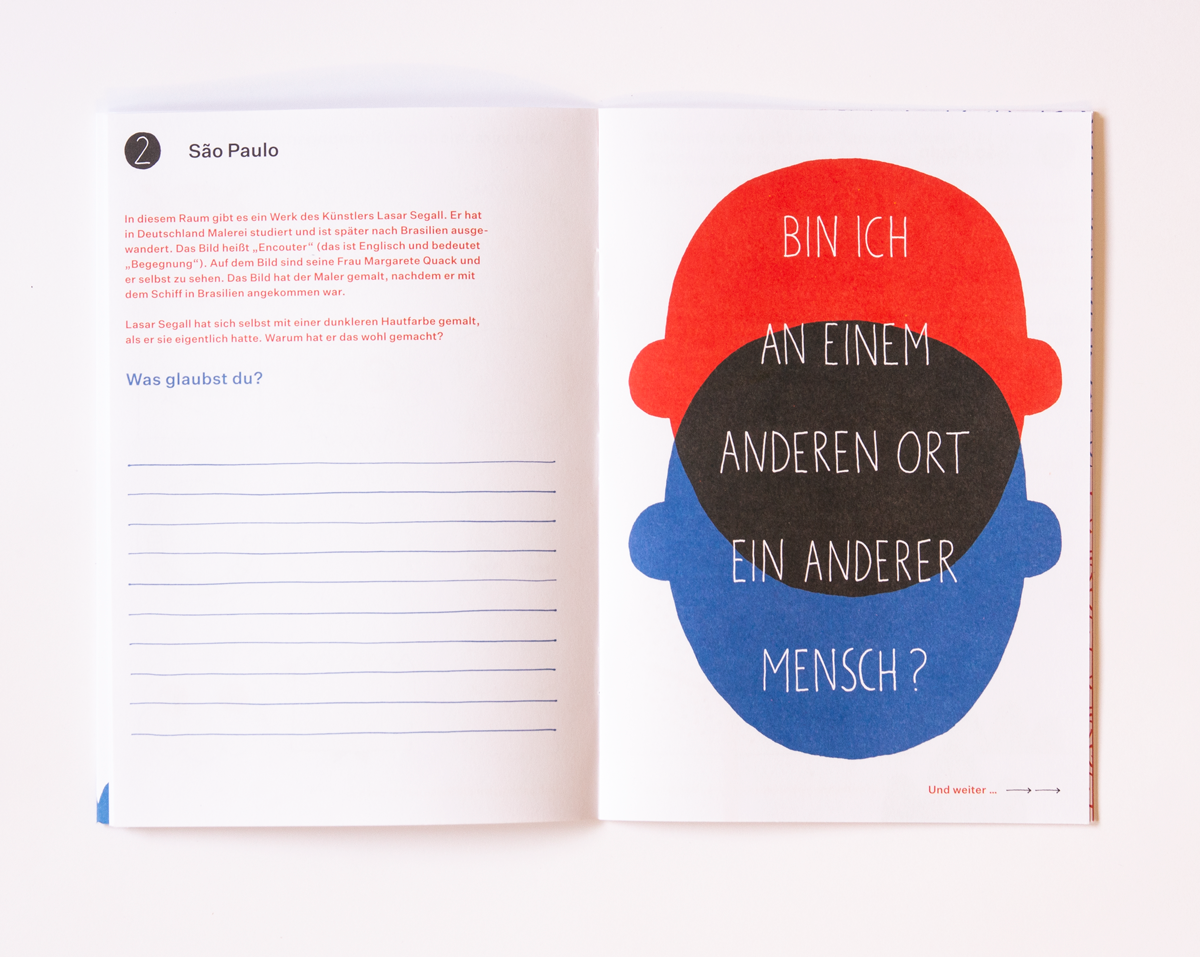 2 São Paulo
In diesem Raum gibt es ein Werk des Künstlers Lasar Segall. Er hat
in Deutschland Malerei studiert und ist später nach Brasilien ausge-
wandert. Das Bild heißt „Encouter“ (das ist Englisch und bedeutet
„Begegnung“). Auf dem Bild sind seine Frau Margarete Quack und
er selbst zu sehen. Das Bild hat der Maler gemalt, nachdem er mit
dem Schiff in Brasilien angekommen war.
Lasar Segall hat sich selbst mit einer dunkleren Hautfarbe gemalt,
als er sie eigentlich hatte. Warum hat er das wohl gemacht?
Was glaubst du?
BIN ICH
AN EINEM
ANDEREN ORT
EIN ANDERER
MENSCH?
Und weiter ...